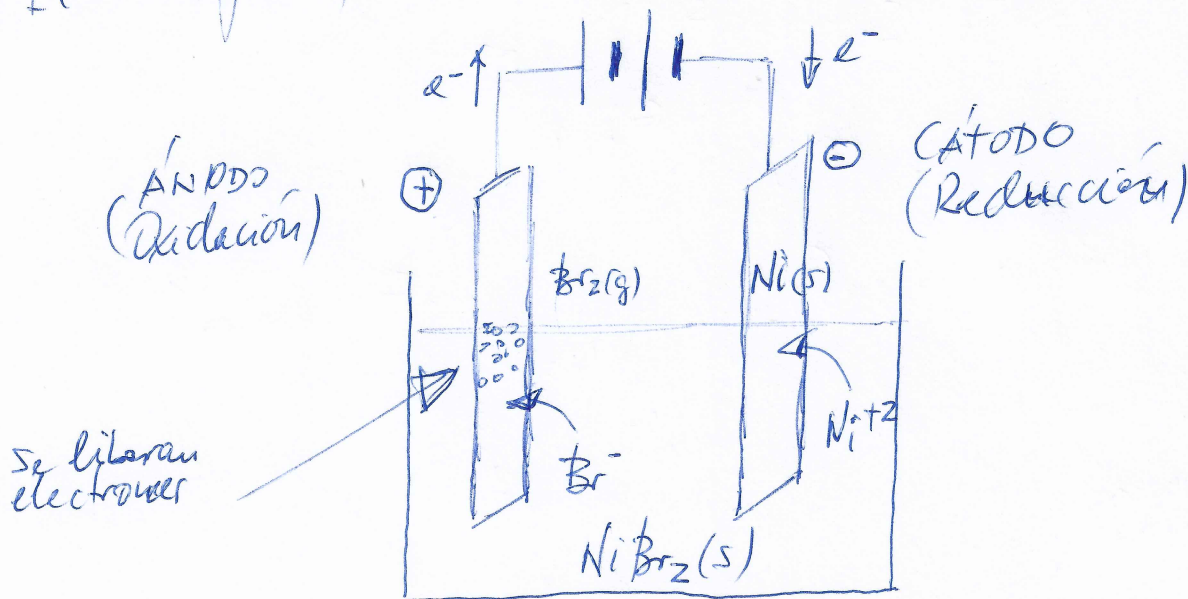 e⁻
e⁻
ÁNODO
(Oxidación)
+
-
CÁTODO
(Reducción)
Br₂(g)
Ni(s)
Ni⁺²
Br⁻
Se liberan
electrones
NiBr₂(s)